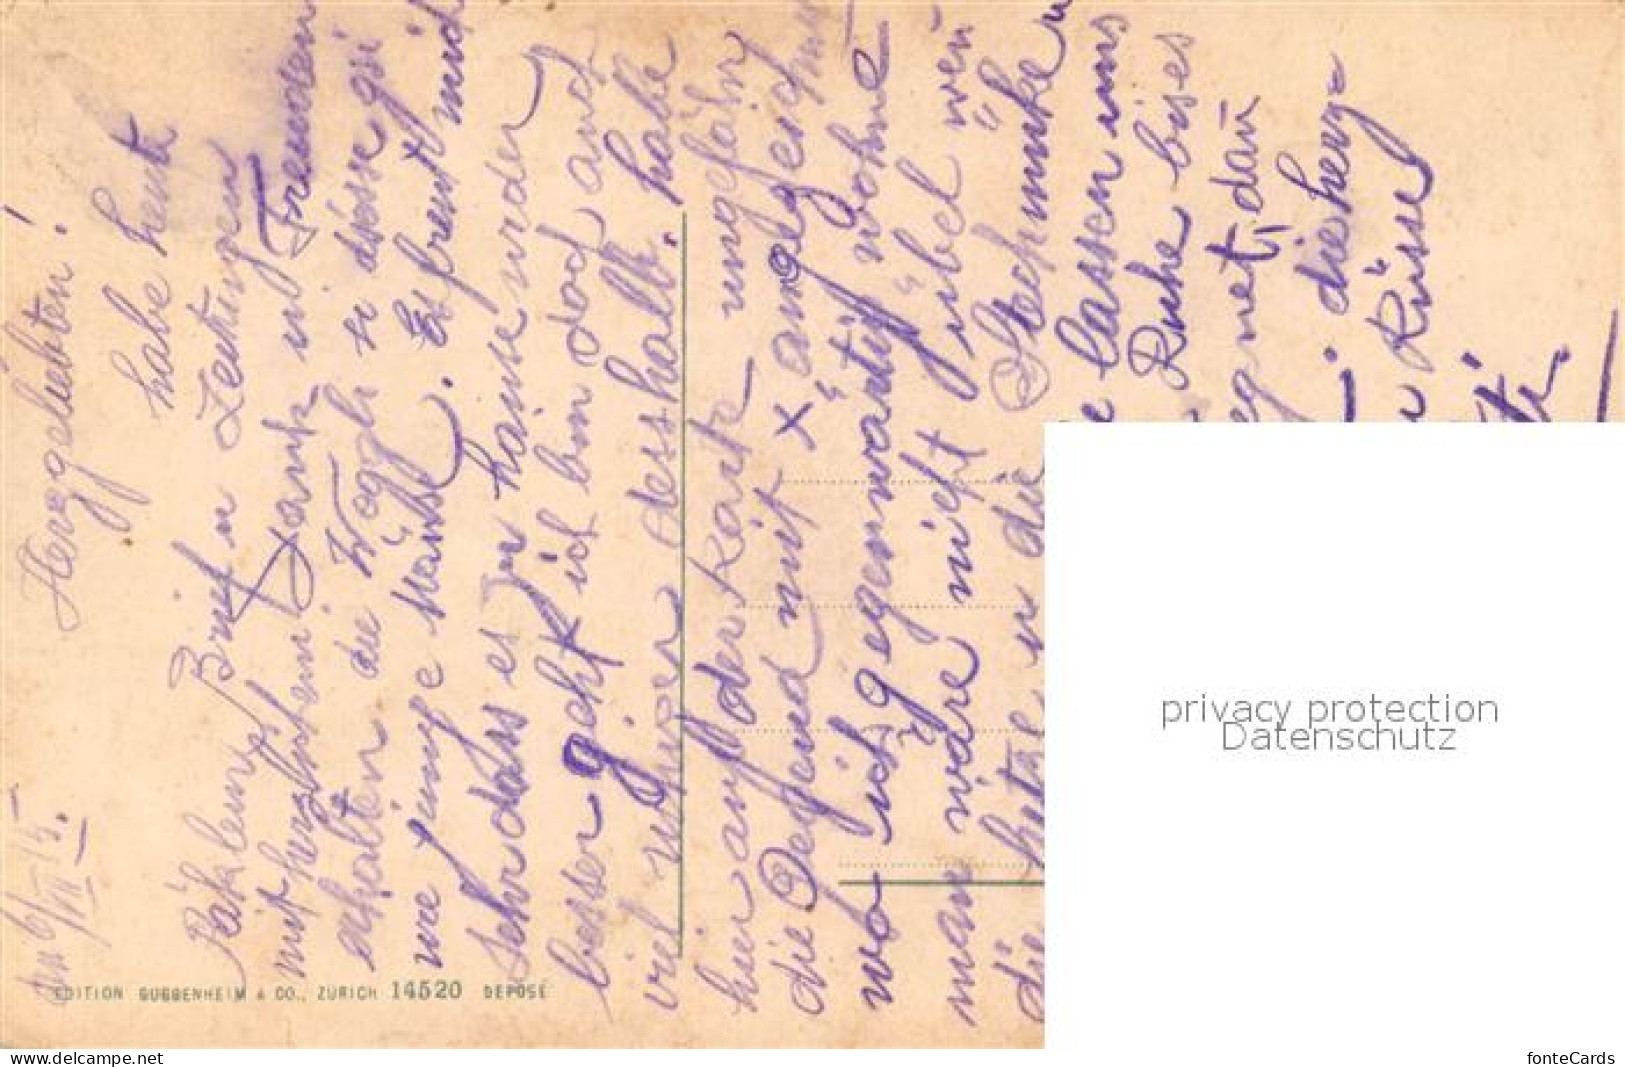 den 6/VII 15.
Herzgeliebten!
habe heute
Päkleins Brief u Zeitungen
mit herzlichem Dank u Freuden
erhalten die Vögli si dässe gsi
wie junge Mäuse. Es freut mich
sehr dass es zu hause wieder
besser geht ich bin doch auch
viel ruhiger desshalb. habe
hier auf der Karte ungefähr
die Gegend mit X angezeichnet
wo ich gegenwärtig wohne
man wäre nicht übel wen
die hitze u die Stechmuke
lassen uns
Ruhe bises
egnet, dan
die herz
u Küsse
EDITION GUGGENHEIM & CO., ZÜRICH 14520 DEPOSÉ
privacy protection
Datenschutz
www.delcampe.net
fonteCards